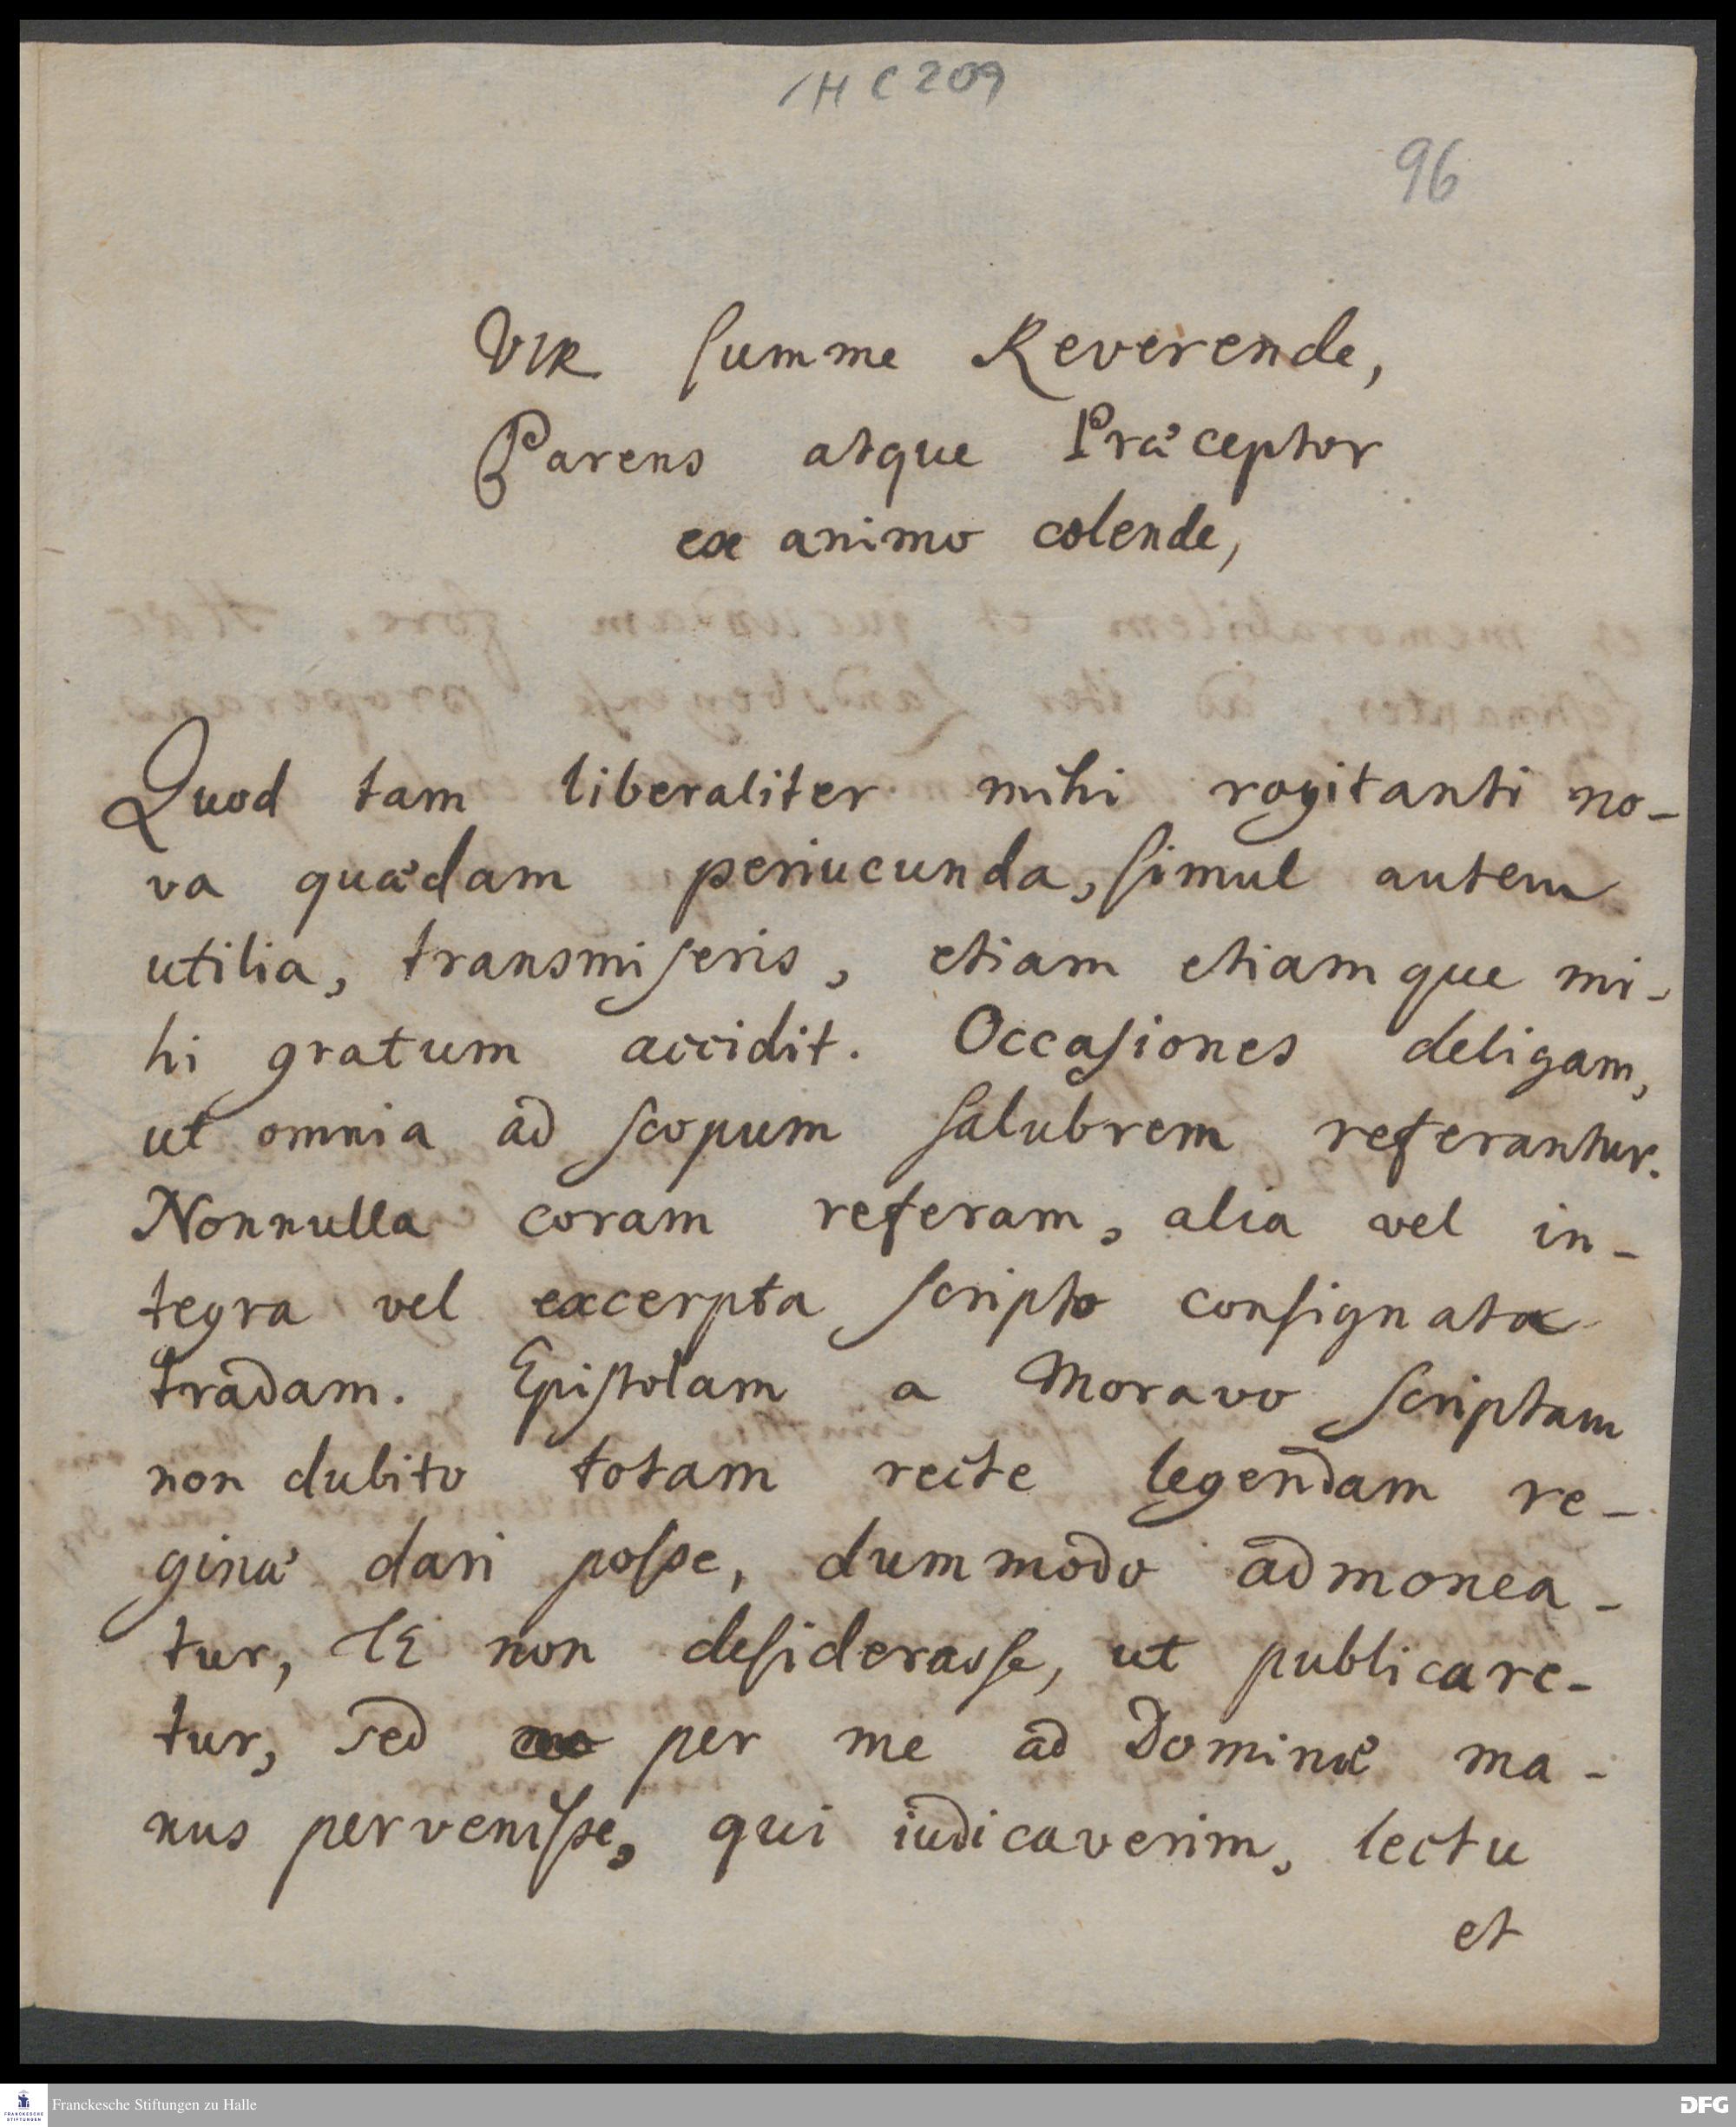 1 H C 209
96
VIR summe Reverende,
Parens atque Præceptor
ex animo colende,
Quod tam liberaliter mihi rogitanti no-
va quædam periucunda, simul autem
utilia, transmiseris, etiam etiamque mi-
hi gratum accidit. Occasiones deligam,
ut omnia ad scopum salubrem referantur.
Nonnulla coram referam, alia vel in-
tegra vel excerpta scripto consignata
tradam. Epistolam a Moravo scriptam
non dubito totam recte legendam re-
ginæ dari posse, dummodo admonea-
tur, TE non desiderasse, ut publicare-
tur, sed per me ad Dominæ ma-
nus pervenisse, qui iudicaverim, lectu
et
Franckesche Stiftungen zu Halle
DFG